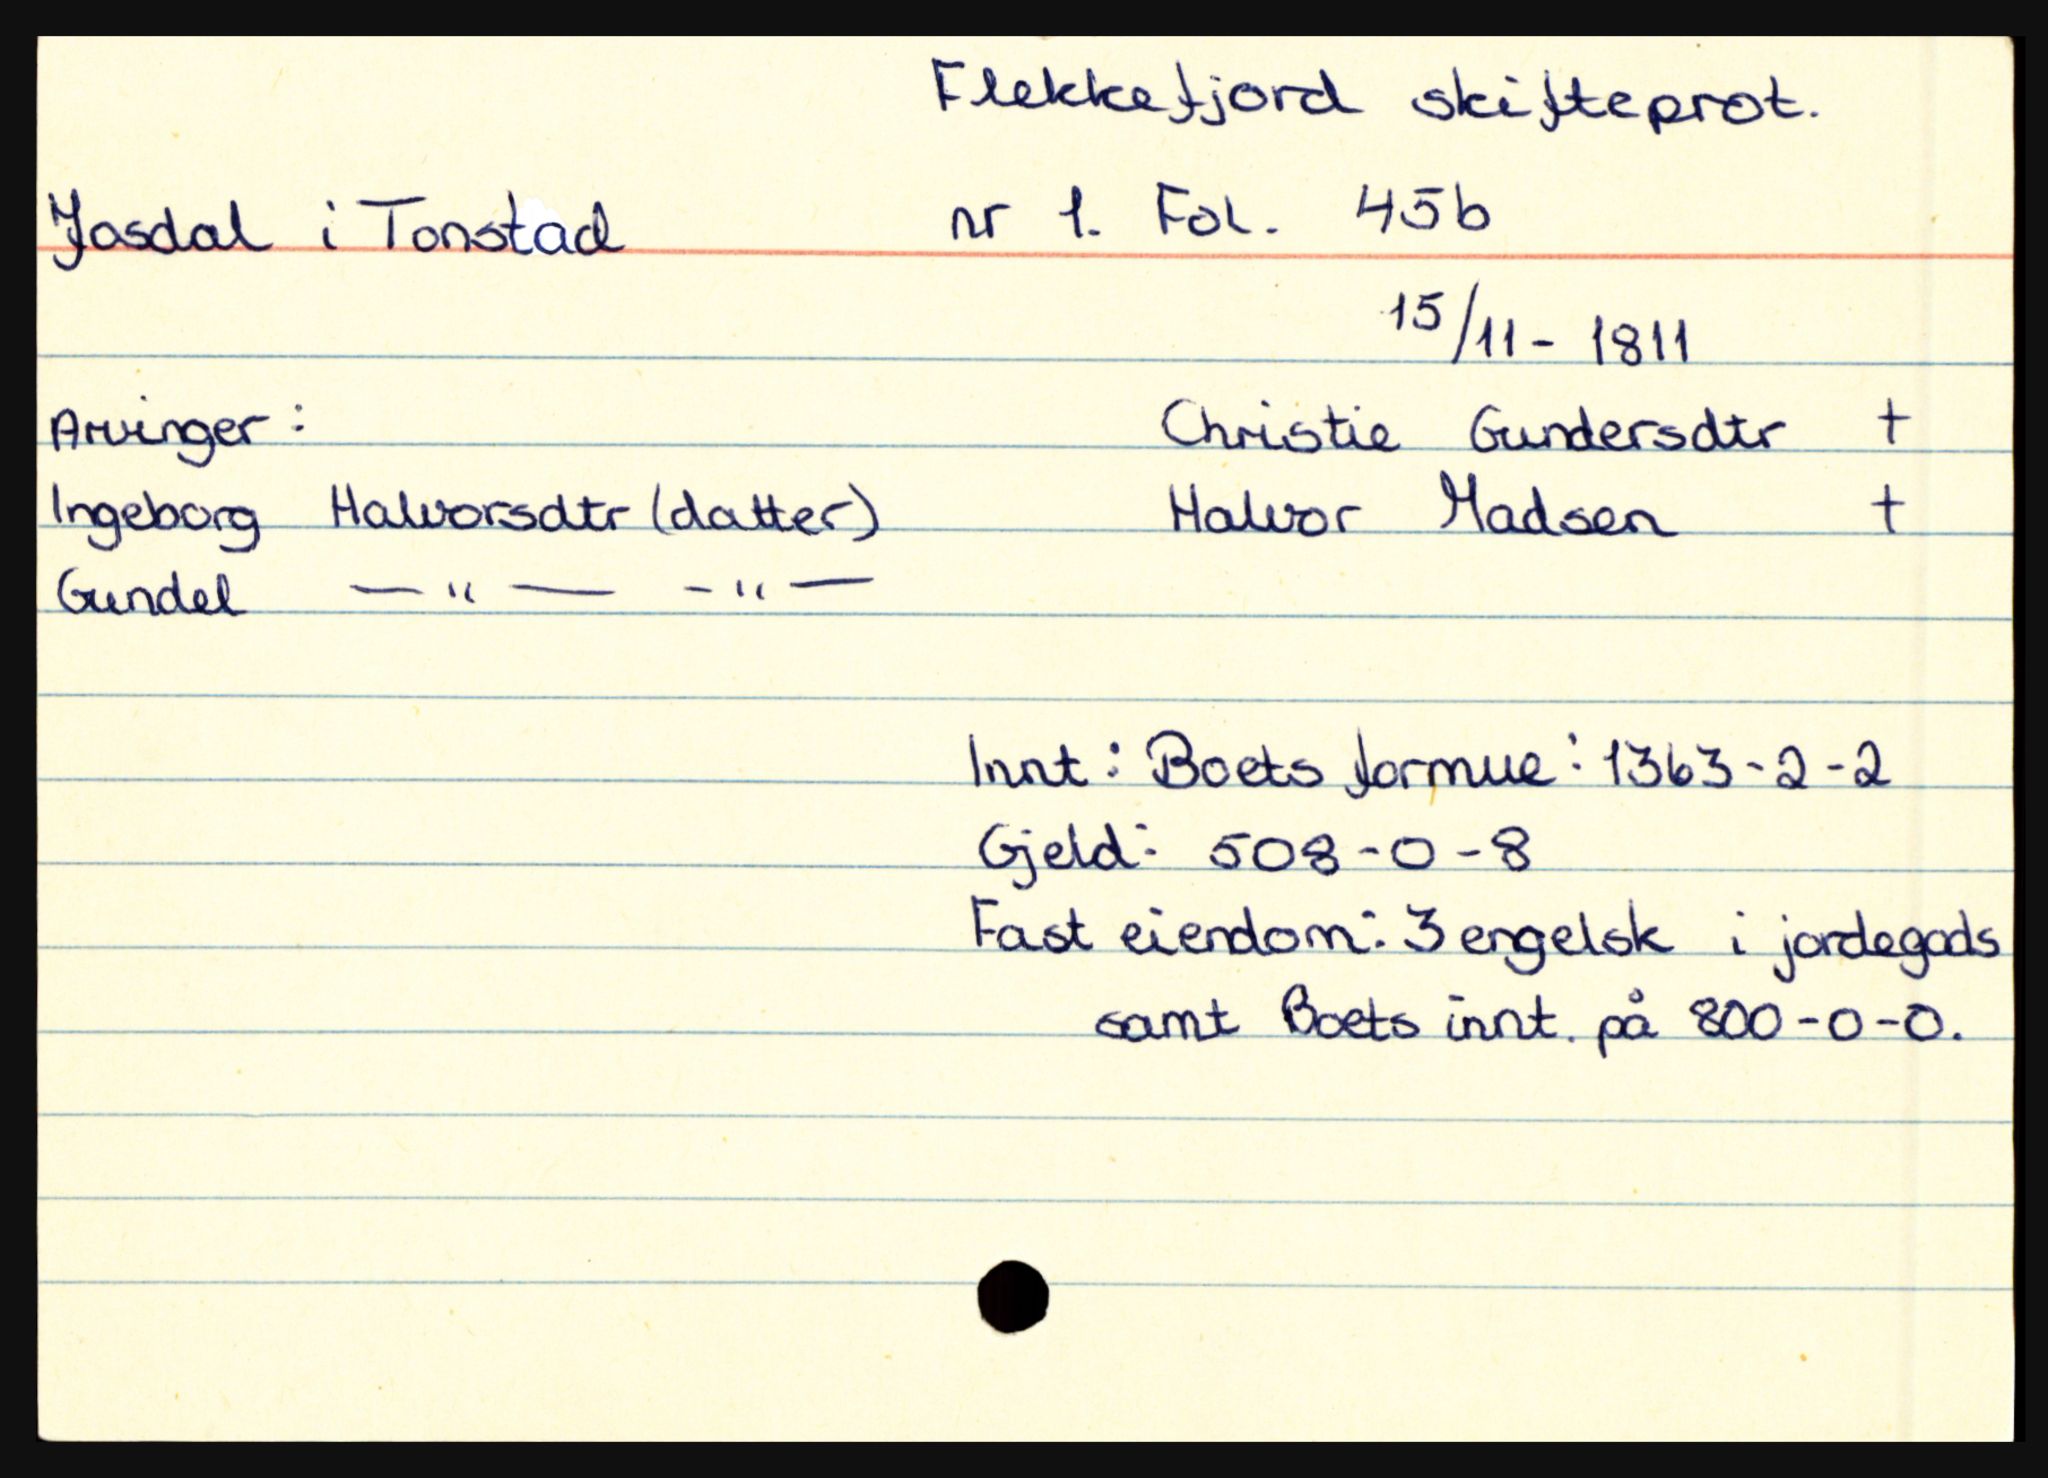 Flekkefjord skifteprot.
Josdal i Tonstad nr 1. Fol. 45b
15/11- 1811
Arvinger: Christie Gundersdtr †
Ingeborg Halvorsdtr (datter) Halvor Madsen †
Gundel — " — - " —
Innt: Boets formue: 1363-2-2
Gjeld: 508-0-8
Fast eiendom: 3 engelsk i jordegods
samt Boets innt. på 800-0-0.